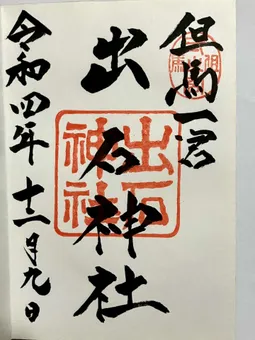 但馬一宮
出石神社
出石神社
令和四年十二月九日